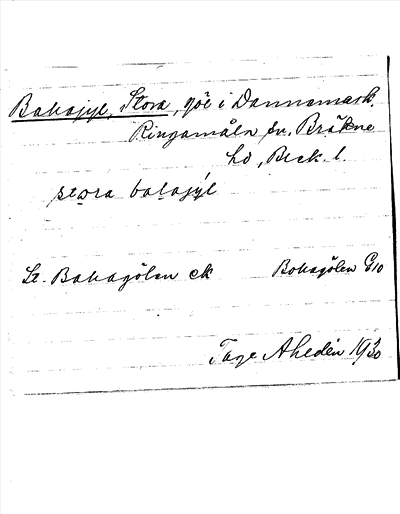 Bokajyl, Stora, göl i Dannemark.
Ringamåla sn. Bräkne
hd, Blek. l.
stora bokajyl
St. Bokagölen ek Bokagölen G10
Tage Ahldén 1930